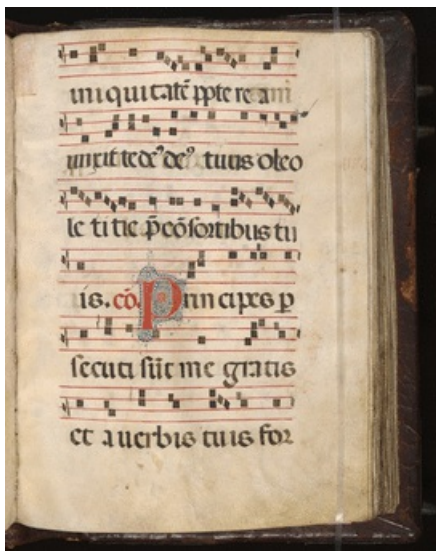 iniquitatē ppte re a
unxit te de᷒ de᷒ tuus oleo
le ti tie p̄ cōsortibus tu
is. cō. Prin cipes p
secuti sūt me gratis
et a uerbis tu is for